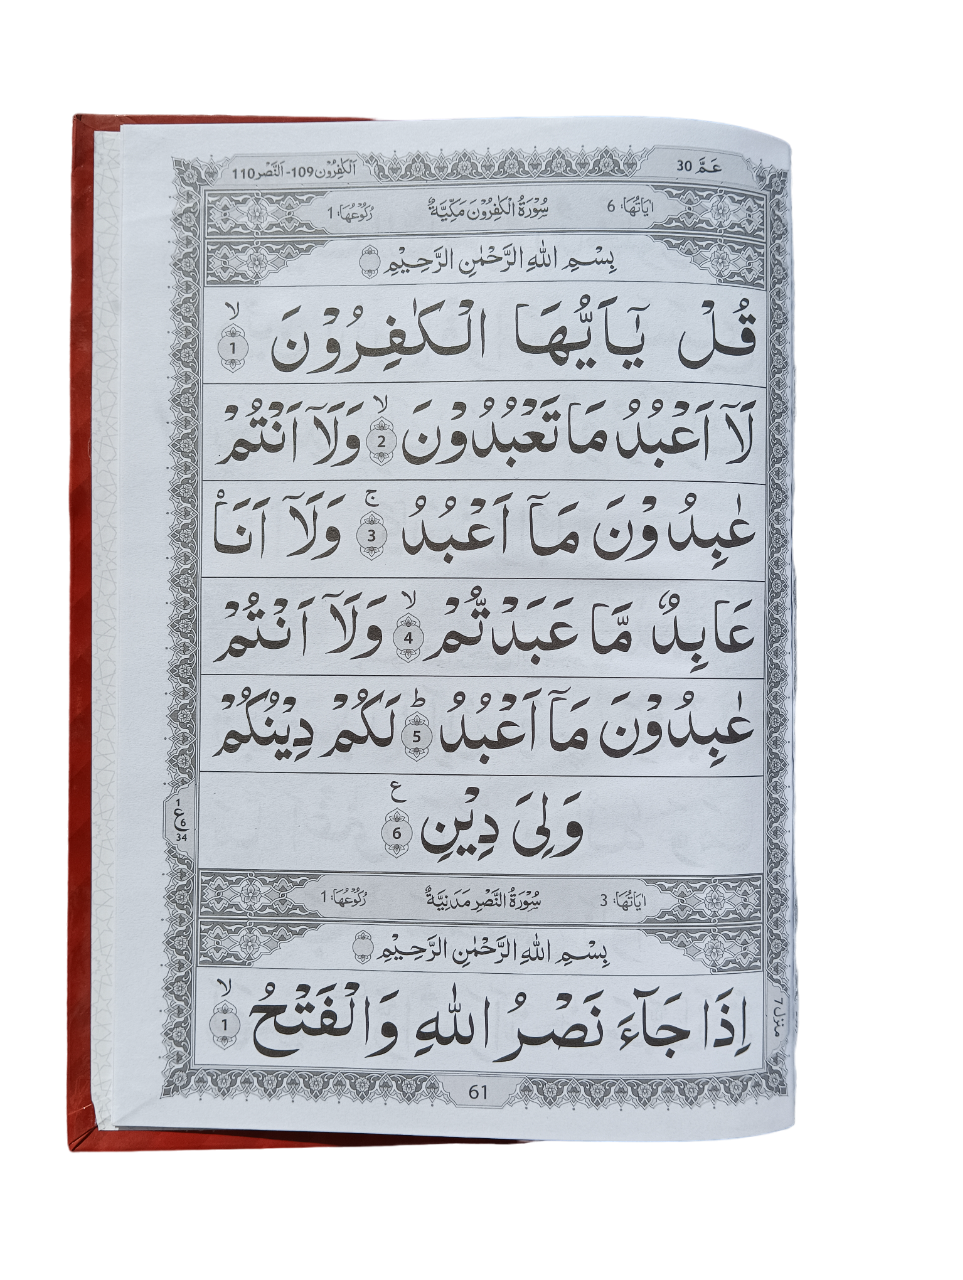 عَمَّ 30
الْكٰفِرُوْن 109- اَلنَّصْر 110
اٰيَاتُهَا: 6 سُوْرَةُ الْكٰفِرُوْنَ مَكِّيَّةٌ رُكُوْعُهَا: 1
بِسْمِ اللّٰهِ الرَّحْمٰنِ الرَّحِيْمِ
قُلْ يٰۤاَيُّهَا الْكٰفِرُوْنَ ۙ 1
لَاۤ اَعْبُدُ مَا تَعْبُدُوْنَ ۙ 2 وَلَاۤ اَنْتُمْ
عٰبِدُوْنَ مَاۤ اَعْبُدُ ۚ 3 وَلَاۤ اَنَا۠
عَابِدٌ مَّا عَبَدْتُّمْ ۙ 4 وَلَاۤ اَنْتُمْ
عٰبِدُوْنَ مَاۤ اَعْبُدُ ؕ 5 لَكُمْ دِيْنُكُمْ
وَلِىَ دِيْنِ ع 6
1
ع
6
34
اٰيَاتُهَا: 3 سُوْرَةُ النَّصْرِ مَدَنِيَّةٌ رُكُوْعُهَا: 1
بِسْمِ اللّٰهِ الرَّحْمٰنِ الرَّحِيْمِ
اِذَا جَآءَ نَصْرُ اللّٰهِ وَالْفَتْحُ ۙ 1
منزل 7
61